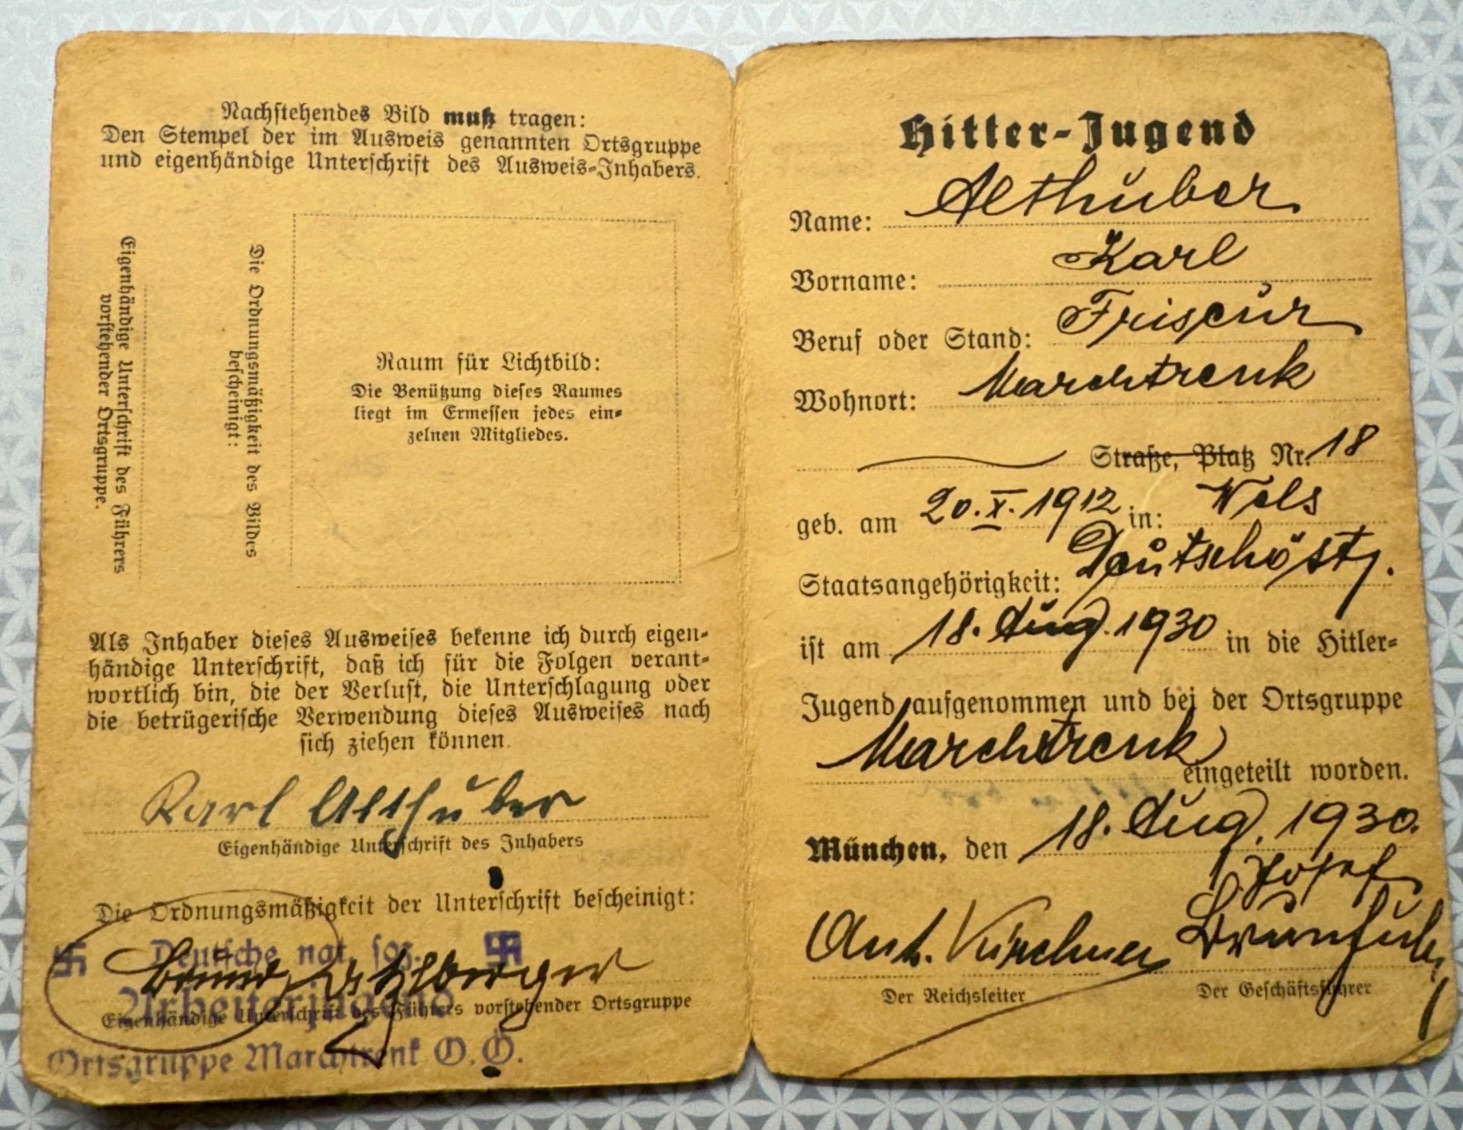 Nachstehendes Bild muß tragen:
Den Stempel der im Ausweis genannten Ortsgruppe
und eigenhändige Unterschrift des Ausweis-Inhabers.
Eigenhändige Unterschrift des Führers
vorstehender Ortsgruppe.
Die Ordnungsmäßigkeit des Bildes
bescheinigt:
Raum für Lichtbild:
Die Benützung dieses Raumes
liegt im Ermessen jedes ein-
zelnen Mitgliedes.
Als Inhaber dieses Ausweises bekenne ich durch eigen-
händige Unterschrift, daß ich für die Folgen verant-
wortlich bin, die der Verlust, die Unterschlagung oder
die betrügerische Verwendung dieses Ausweises nach
sich ziehen können.
Karl Althuber
Eigenhändige Unterschrift des Inhabers
Die Ordnungsmäßigkeit der Unterschrift bescheinigt:
Deutsche nat. soz.
Arbeiterjugend
Eigenhändige Unterschrift des Führers vorstehender Ortsgruppe
Ortsgruppe Marchtrenk O.Ö.
Hitler-Jugend
Name: Althuber
Vorname: Karl
Beruf oder Stand: Friseur
Wohnort: Marchtrenk
Straße, Platz Nr. 18
geb. am 20.X.1912 in: Wels
Staatsangehörigkeit: Deutschöstr.
ist am 18. Aug. 1930 in die Hitler-
Jugend aufgenommen und bei der Ortsgruppe
Marchtrenk
eingeteilt worden.
München, den 18. Aug. 1930.
Josef
Ant. Kirchner
Der Reichsleiter
Der Geschäftsführer